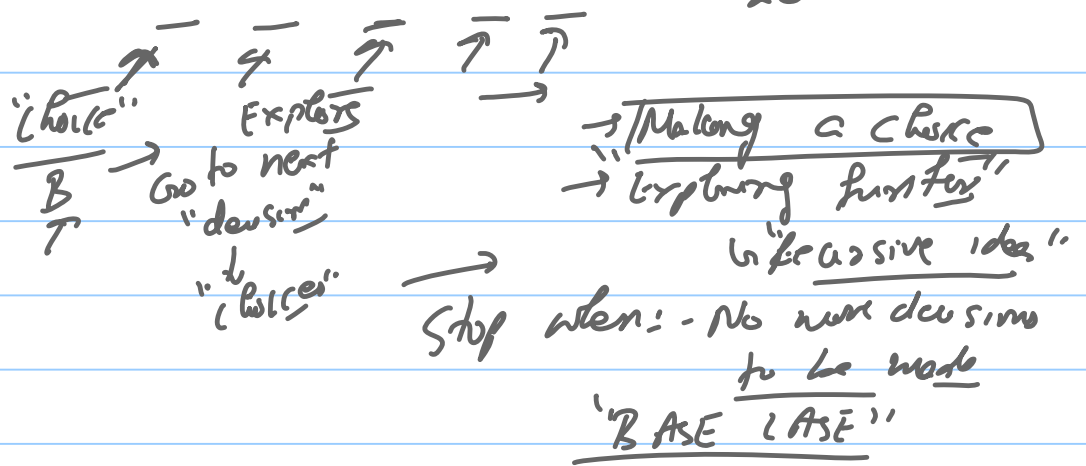 "Choice"
B
Explore
Go to next
"decision"
"choices"
Making a choice
"Exploring further"
"Recursive idea"
Stop when:- No more decisions
to be made
"BASE CASE"